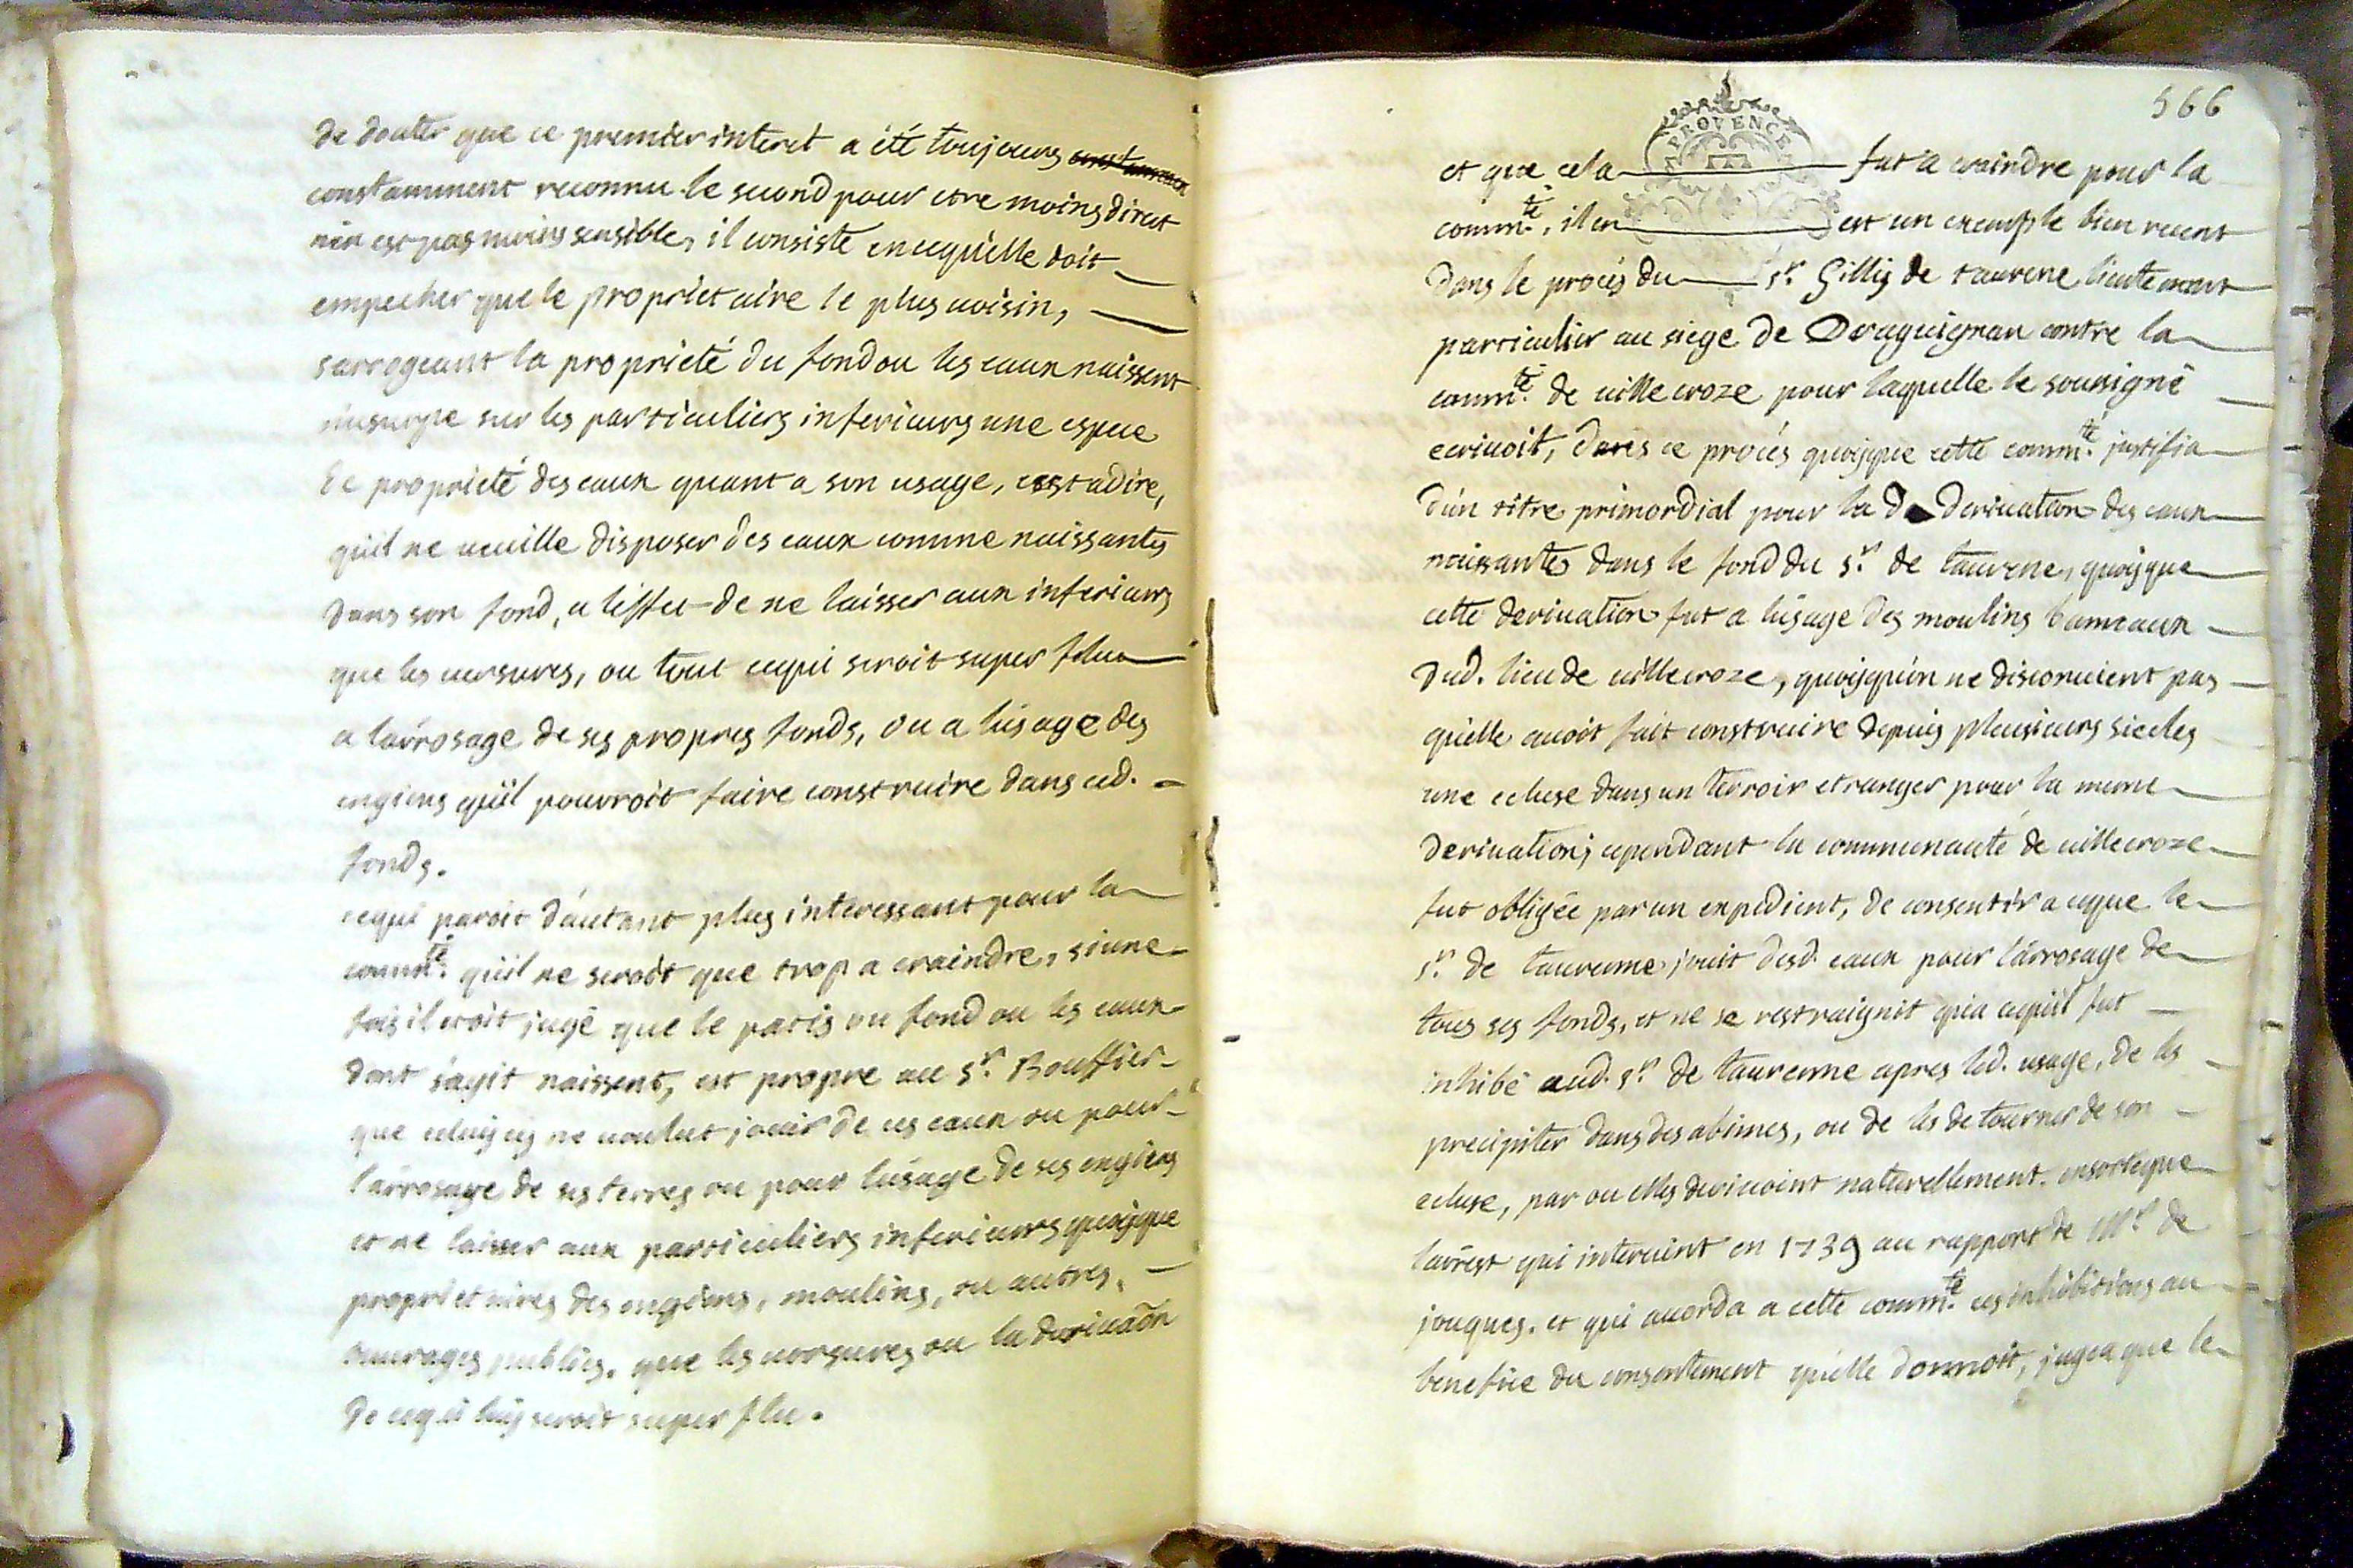 de douter que ce premier interet a été toujours constamen
constamment reconnu le second pour etre moins direct
n'en est pas moins sensible, il consiste en ce qu'elle doit
empecher que le proprietaire le plus voisin,
sarrogeant la proprieté du fond ou les eaux naissent
n'usurpe sur les particuliers inferieurs une espece
de proprieté des eaux quant a son usage, cest adire,
qu'il ne veuille disposer des eaux comme naissantes
dans son fond, a l'effet de ne laisser aux inferieurs
que les versures, ou tout cequi seroit super flu
a l'arrosage de ses propres fonds, ou a l'usage des
engiens qu'il pourroit faire construire dans ced.
fonds.
cequi paroit d'autant plus interessant pour la
comm.té qu'il ne seroit que trop a craindre, si une
fois il etoit jugé que le patis ou fond ou les eaux
dont s'agit naissent, est propre au s.r Bouffier
que celuy cy ne voulut jouir de ces eaux ou pour
l'arrosage de ses terres ou pour l'usage de ses engiens
et ne laisser aux particuliers inferieurs quoyque
proprietaires des engiens, moulins, ou autres
ouvrages publics, que les versures ou la derivaõn
de cequi luy seroit super flu.
566
PROVENCE
et que cela fut a craindre pour la
comm.té, il en est un exemple bien recent
dans le procés du s.r Gillis de taurene lieutenant
particulier au siege de Draguignan contre la
comm.té de villecroze pour laquelle le sousigné
ecrivoit, dans ce procés quoyque cette comm.té justifia
d'un titre primordial pour la d derivation des eaux
naissantes dans le fond du s.r de taurene, quoyque
cette derivation fut a l'usage des moulins bannaux
dud. lieu de villecroze, quoyqu'on ne disconvient pas
qu'elle avoit fait construire depuis plusieurs siecles
une ecluse dans un terroir etranger pour la meme
derivation; cependant la communauté de villecroze
fut obligée par un expedient, de consentir a ceque le
s.r de taurenne jouit desd. eaux pour l'arrosage de
tous ses fonds, et ne se restraignit qu'a cequ'il fut
inhibé aud. s.r de taurenne apres led. usage, de les
precipiter dans des abimes, ou de les detourner de son
ecluse, par ou elles derivoint naturellement. ensorteque
l'arrest qui intervint en 1739 au rapport de M.r de
jouques. et qui accorda a cette comm.té ces inhibitions au
benefice du consentement qu'elle donnoit, jugea que le